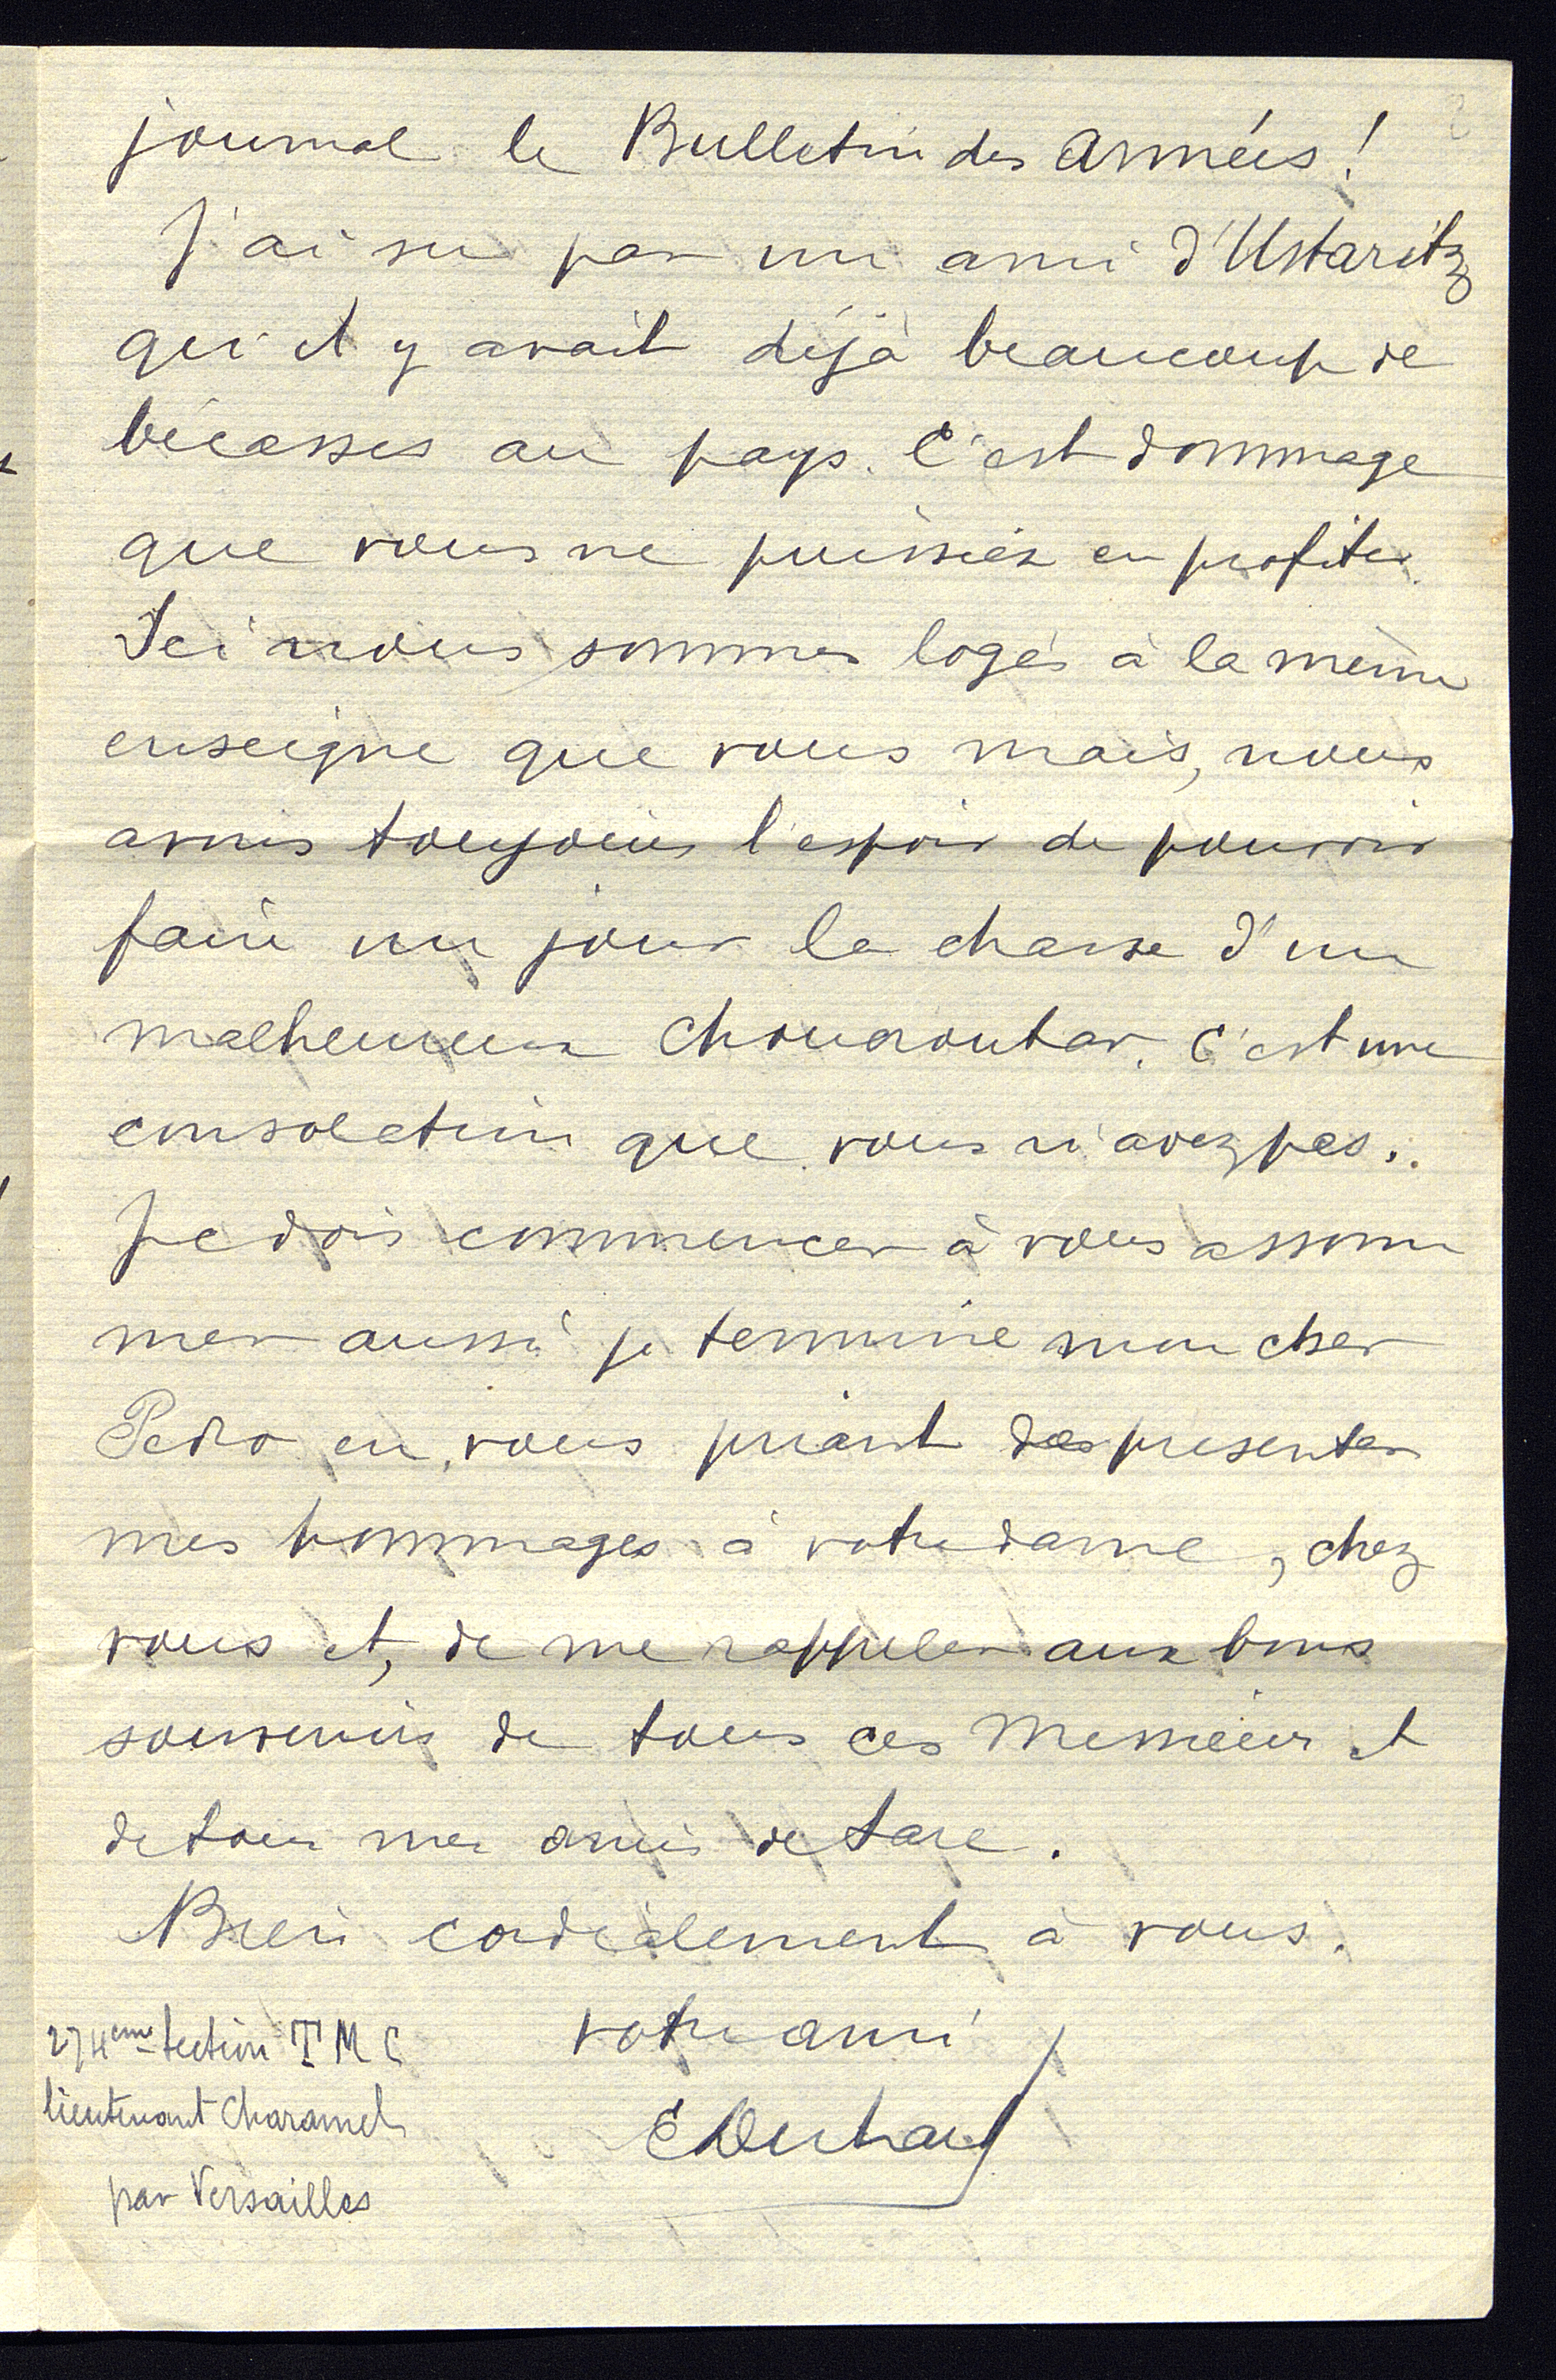 journal le Bulletin des Armées !
J'ai su par un ami d'Ustaritz
qu'il y avait déjà beaucoup de
bécasses au pays. C'est dommage
que vous ne puissiez en profiter.
Ici nous sommes logés à la même
enseigne que vous mais, nous
avons toujours l'espoir de pouvoir
faire un jour la chasse d'un
malheureux Choucroutar. C'est une
consolation que vous n'avez pas..
Je dois commencer à vous assom
mer aussi je termine mon cher
Pedro en vous priant de présenter
mes hommages à votre dame, chez
vous et, de me rappeler aux bons
souvenirs de tous ces Messieurs et
de tous mes amis de
Bien cordialement à vous.
votre ami
274eme section T M C
lieutenant Charamel
par Versailles